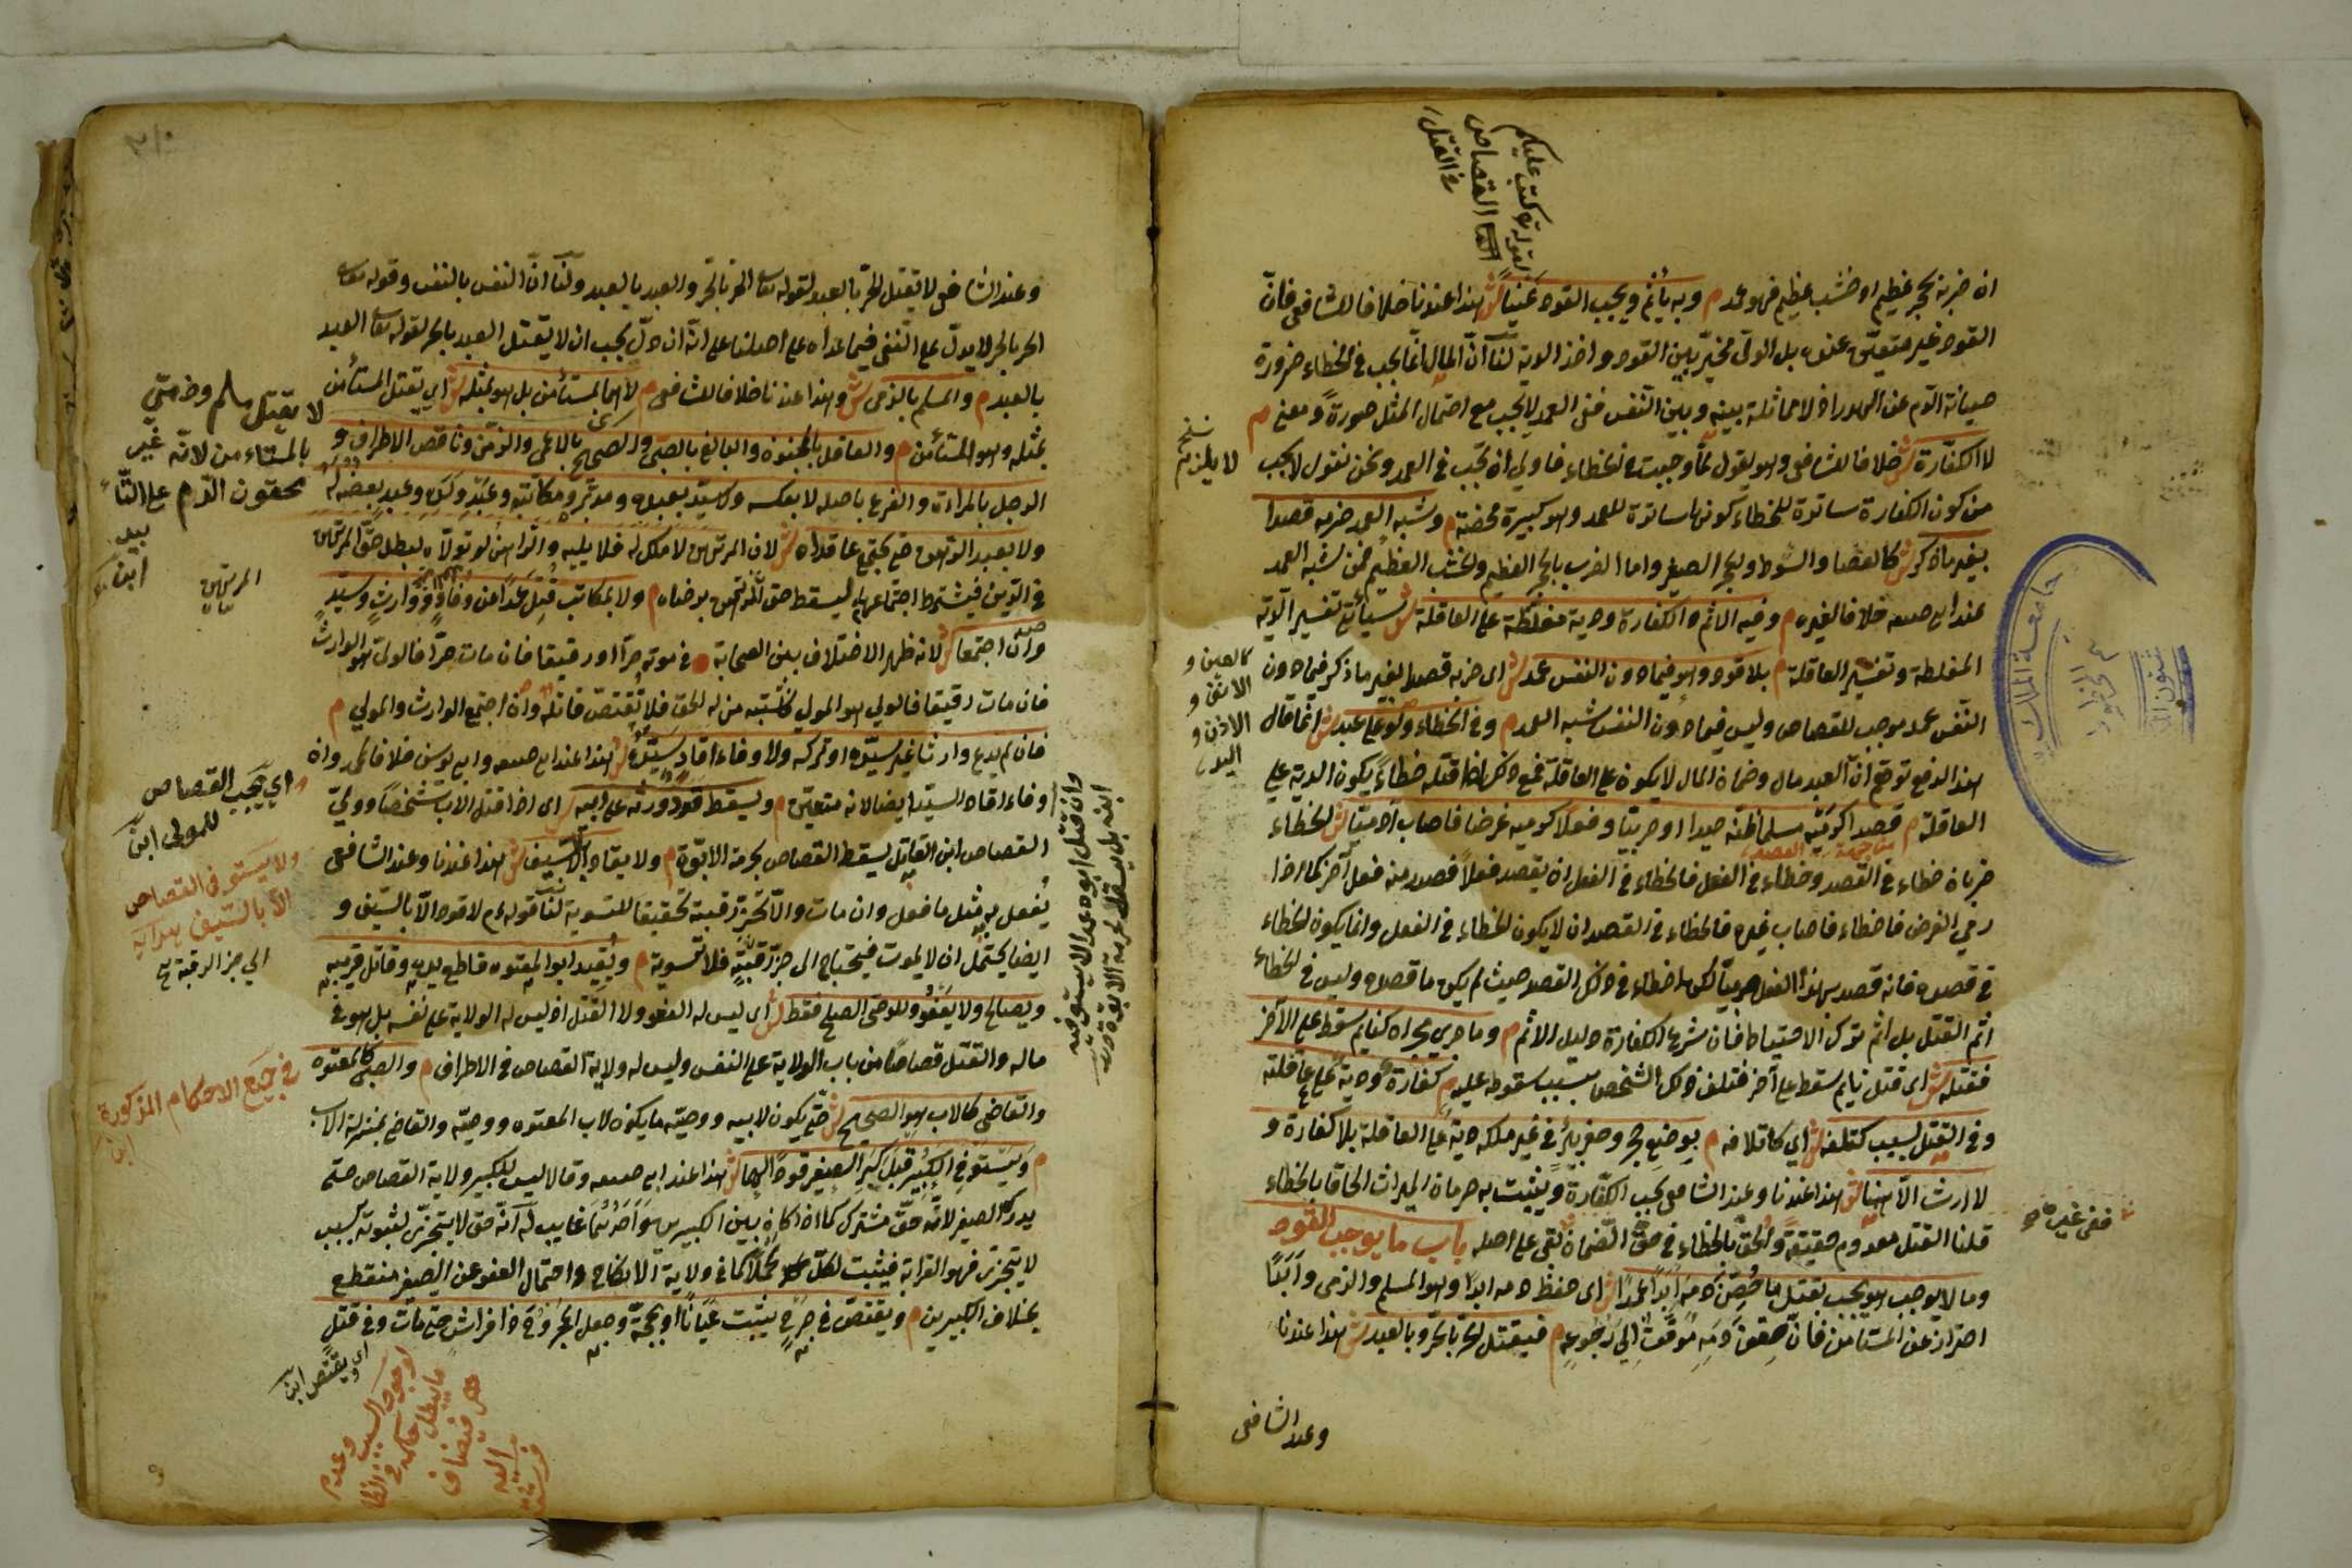 ان ضربه بحجر عظيم او خشب عظيم فهو عمد م وبه يأثم ويجب القود عينا ش هذا عندنا خلافا للشافعي فان
القود غير متعين عنده بل الولي مخير بين القود واخذ الدية لنا ان المال انما يجب في الخطاء ضرورة
صيانة الدم عن الهدر اذ لا مماثلة بينه وبين النفس ففي العمد لا يجب مع احتمال المثل صورة ومعنى م
لا الكفارة ش خلافا للشافعي وهو يقول لما وجبت في الخطاء فاولى ان تجب في العمد ونحن نقول لا يجب
من كون الكفارة ساترة للخطاء كونها ساترة للعمد وهو كبيرة محضة م وشبه العمد ضربه قصدا
بغير ما ذكر ش كالعصا والسوط والحجر الصغير واما الضرب بالحجر العظيم والخشب العظيم فمن شبه العمد
عند ابي حنيفه خلافا لغيره م وفيه الاثم والكفارة ودية مغلظة على العاقلة ش سيأتي تفسير الدية
المغلظة وتفسير العاقلة م بلا قود وهو فيما دون النفس عمد ش اي ضربه قصدا بغير ما ذكر فيما دون
النفس عمد موجب للقصاص وليس فيما دون النفس شبه العمد م وفي الخطاء ولو على عبد ش انما قال
هذا لدفع توهم ان العبد مال وضمان المال لا يكون على العاقلة فمع ذلك اذا قتله خطاء يكون الدية على
العاقلة م قصدا كرميه مسلما ظنه صيدا او حربيا وفعلا كرميه غرضا فاصاب آدميا ش الخطاء
ضربان خطاء في القصد وخطاء في الفعل فالخطاء في الفعل ان يقصد فعلا فصدر منه فعل آخر كما اذا
رمى الغرض فاخطاء فاصاب غيره فالخطاء في القصد ان لا يكون الخطاء في الفعل وانما يكون الخطاء
في قصده فانه قصد بهذا الفعل حربيا لكن اخطاء في ذلك القصد حيث لم يكن ما قصده وليس في الخطاء
اثم القتل بل اثم ترك الاحتياط فان شرع الكفارة دليل الاثم م وما جرى مجراه كنايم سقط على الآخر
فقتله ش اي قتل نايم سقط على آخر فتلف ذلك الشخص بسبب سقوطه عليه م كفارة ودية على عاقلته
وفي القتل بسبب كتلفه ش اي كاتلافه م بوضع حجر وحفر بئر في غير ملكه دية على العاقلة بلا كفارة و
لا ارث الا هنا ش هذا عندنا وعند الشافعي يجب الكفارة ويثبت به حرمان الميراث الحاقا بالخطاء
قلنا القتل معدوم حقيقة والحق بالخطاء في حق الضمان فبقي على اصله باب ما يوجب القود
وما لا يوجب هو يجب بقتل ما حقن دمه ابدا عمدا ش اي حفظ دمه ابدا وهو المسلم والذمي وابدا
احتراز عن المستامن فان حقن دمه موقت الى رجوعه م فيقتل الحر بالحر وبالعبد ش هذا عندنا
وعند الشافعي
لقوله تع كتب عليكم
القصاص
في القتلى
لا يلزم
كالعين و
الانف و
الاذن و
اليد
ففي غيره
جامعة الملك
وعند الشافعي لا يقتل الحر بالعبد لقوله تعا الحر بالحر والعبد بالعبد ولنا ان النفس بالنفس وقوله تعا
الحر بالحر لا يدل على النفي فيما عداه على اصلنا على انه ان دل يجب ان لا يقتل العبد بالحر لقوله تعا العبد
بالعبد م والمسلم بالذمي ش وهذا عندنا خلافا للشافعي م لا هما بمستأمن بل هو بمثله ش اي يقتل المستأمن
بمثله وهو المستأمن م والعاقل بالمجنون والبالغ بالصبي والصحيح بالاعمى والزمن وناقص الاطراف و
الرجل بالمراة والفرع باصله لا بعكسه ولا سيد بعبده ومدبره ومكاتبه وعبد ولده وعبد بعضه له
ولا بعبد الرهن حتى يجتمع عاقداه ش لان المرتهن لا ملك له فلا يليه والراهن لو تولاه لبطل حق المرتهن
في الدين فيشترط اجتماعهما ليسقط حق المرتهن برضاه م ولا بمكاتب قتل عمدا عن وفاء ووارث وسيد
وان اجتمعا ش لانه ظهر الاختلاف بين الصحابة في موته حرا او رقيقا فان مات حرا فالولي هو الوارث
فان مات رقيقا فالولي هو المولى فاشتبه من له الحق فلا يقتص قاتله وان اجتمع الوارث والمولى م
فان لم يدع وارثا غير سيده او تركه ولا وفاء اقاد سيده ش هذا عند ابي حنيفه وابي يوسف خلافا لمحمد وان
وفاء اقاد السيد ايضا لانه متعين م ويسقط قود ورثه على ابيه ش اي اذا قتل الاب شخصا وولي
القصاص ابن القاتل يسقط القصاص بحرمة الابوة م ولا يقاد الا بالسيف ش هذا عندنا وعند الشافعي
يفعل به مثل ما فعل وان مات والا تحز رقبته تحقيقا للتسوية لنا قوله ءم لا قود الا بالسيف و
ايضا يحتمل ان لا يموت فيحتاج الى حز رقبته فلا تسوية م ويقيد ابو المعتوه قاطع يده وقاتل قريبه
ويصالح ولا يعفو وللوصي الصلح فقط ش اي ليس له العفو ولا القتل اذ ليس له الولاية على نفسه بل هو في
ماله والقتل قصاصا من باب الولاية على النفس وليس له ولاية القصاص في الاطراف م والصبي كالمعتوه
والقاضي كالاب هو الصحيح ش حتى يكون لابيه ووصيه ما يكون لاب المعتوه ووصيه والقاضي بمنزلة الاب
م ويستوفي الكبير قبل كبر الصغير قودا لهما ش هذا عند ابي حنيفه وقالا ليس للكبير ولاية القصاص حتى
يدرك الصغير لانه حق مشترك كما اذا كان بين الكبيرين واحدهما غايب له انه حق لا يتجزى لثبوته بسبب
لا يتجزى فهو القرابة فيثبت لكل كملا كما في ولاية الانكاح واحتمال العفو عن الصغير منقطع
بخلاف الكبيرين م ويقتص في جرح يثبت عيانا او بحجة وجعل المجروح ذا فراش حتى مات وفي قتل
لا يقتل مسلم وذمي
بالمستاءمن لانه غير
محقون الدم على التأ
بيد
المرتهن
اي يجب القصاص
للمولى
ولا يستوفى القصاص
الا بالسيف هداية
الى حز الرقبة
في جميع الاحكام المذكورة
وان قتل ابوه عمدا لا يستوفيه
ابنه بل يسقط لحرمة الابوة
اي ويقتص